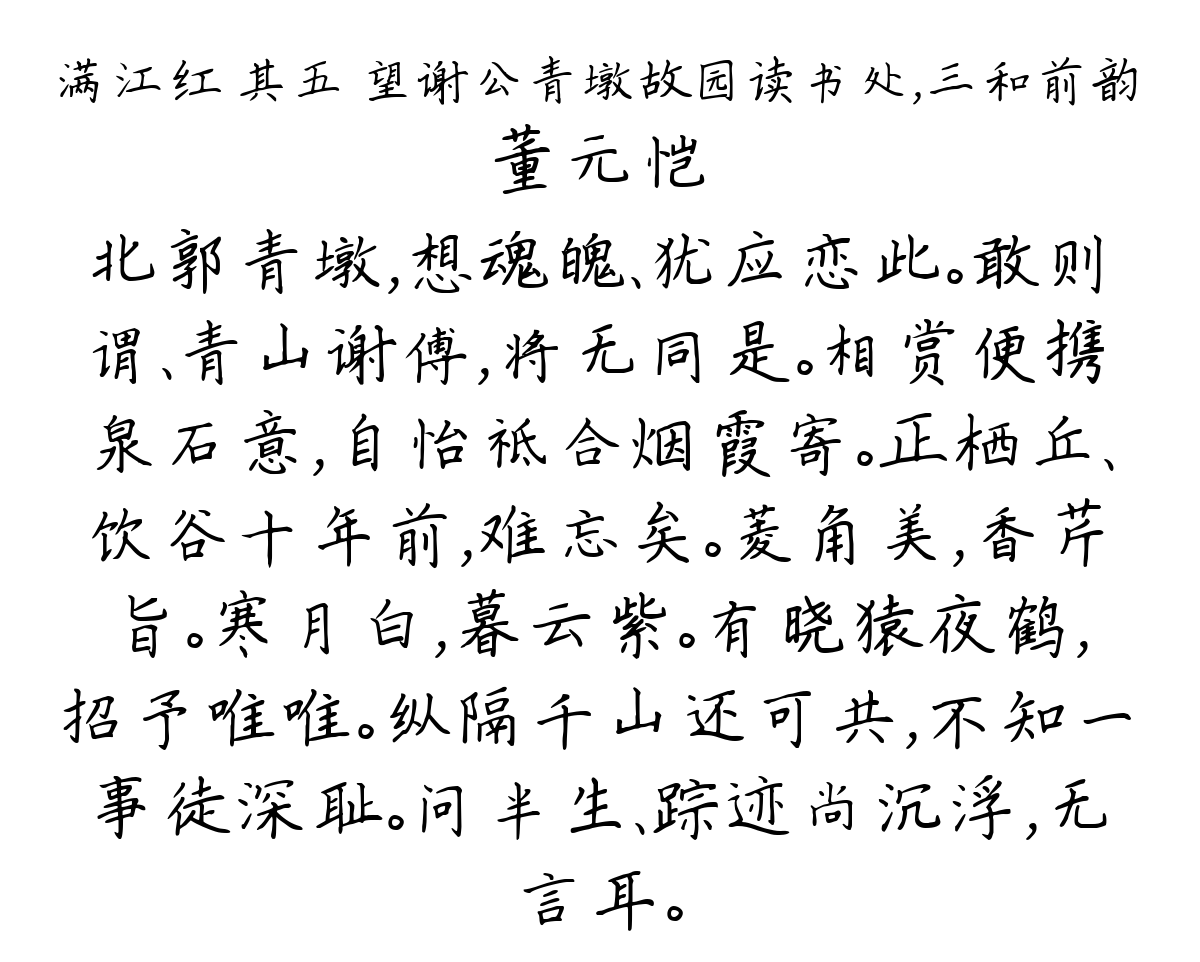 满江红 其五 望谢公青墩故园读书处,三和前韵
董元恺
北郭青墩,想魂魄、犹应恋此。敢则
谓、青山谢傅,将无同是。相赏便携
泉石意,自怡祗合烟霞寄。正栖丘、
饮谷十年前,难忘矣。菱角美,香芹
旨。寒月白,暮云紫。有晓猿夜鹤,
招予唯唯。纵隔千山还可共,不知一
事徒深耻。问半生、踪迹尚沉浮,无
言耳。